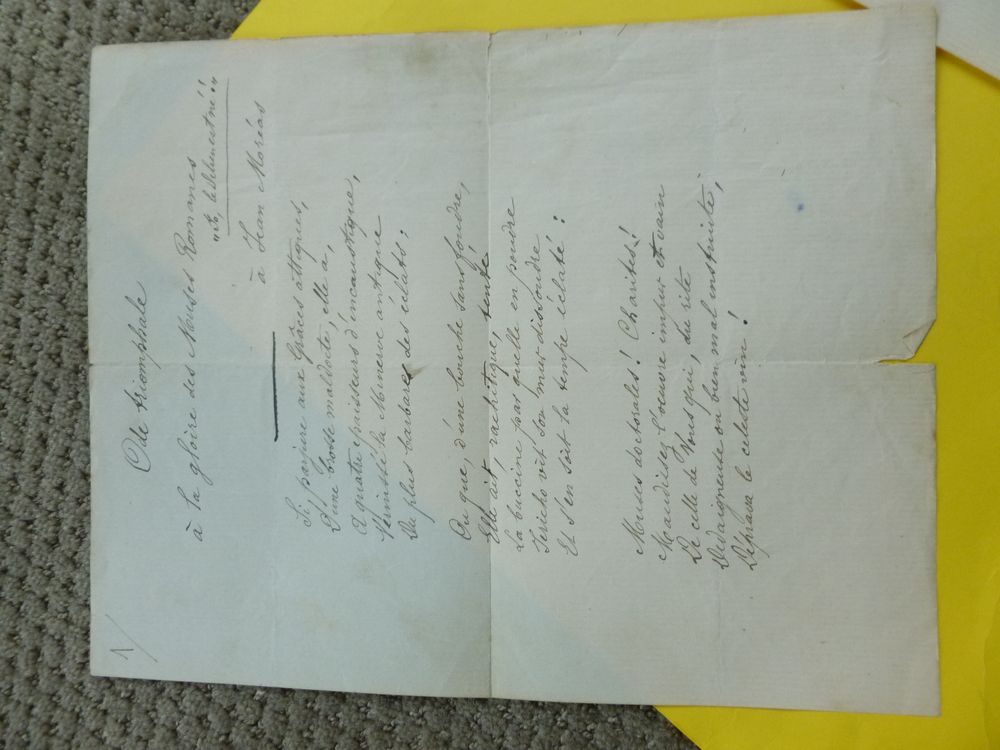 1/
Ode triomphale
à la gloire des Muses Romanes
à Jean Moréas
Si, parjure aux Grâces attiques,
D'une brosse maldocte, elle a,
A quatre épaisseurs d'encaustique,
Vernissé la Minerve antique
Du plus barbare des éclats;
Ou que, d'une bouche sans foudre,
Elle ait, rachitique, tenté
La buccine pas quelle en poudre
Jéricho vit son mur dissoudre
Et s'en soit la tempe éclaté:
Muses doctorales! Charites!
Maudissez l'oeuvre impur et vain
De celle de Vous qui, du rite
Dedaigneuse ou bien mal instruite,
Déprava le céleste vin!